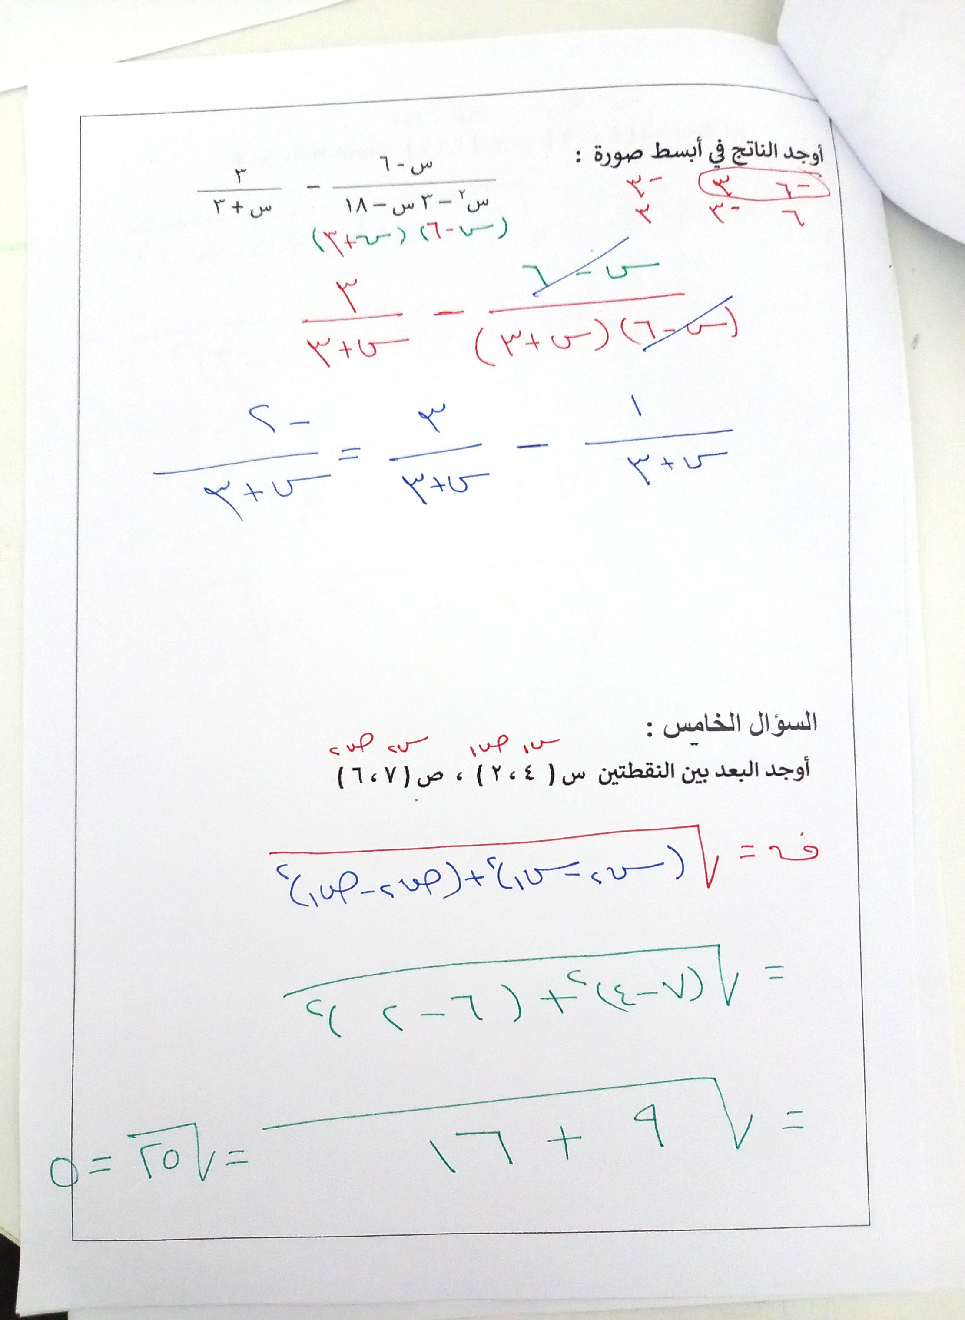 أوجد الناتج في أبسط صورة :
س - ٦ / س٢ - ٣ س - ١٨ - ٣ / س + ٣
-٦ ٣ -٣
٦ -٣ ٣
(س - ٦) (س + ٣)
س - ٦ / (س - ٦) (س + ٣) - ٣ / س + ٣
١ / س + ٣ - ٣ / س + ٣ = -٢ / س + ٣
السؤال الخامس :
س١ ص١ س٢ ص٢
أوجد البعد بين النقطتين س ( ٤ ، ٢ ) ، ص ( ٧ ، ٦ )
ف = √(س٢ - س١)٢ + (ص٢ - ص١)٢
= √(٧ - ٤)٢ + (٦ - ٢)٢
= √٩ + ١٦ = √٢٥ = ٥